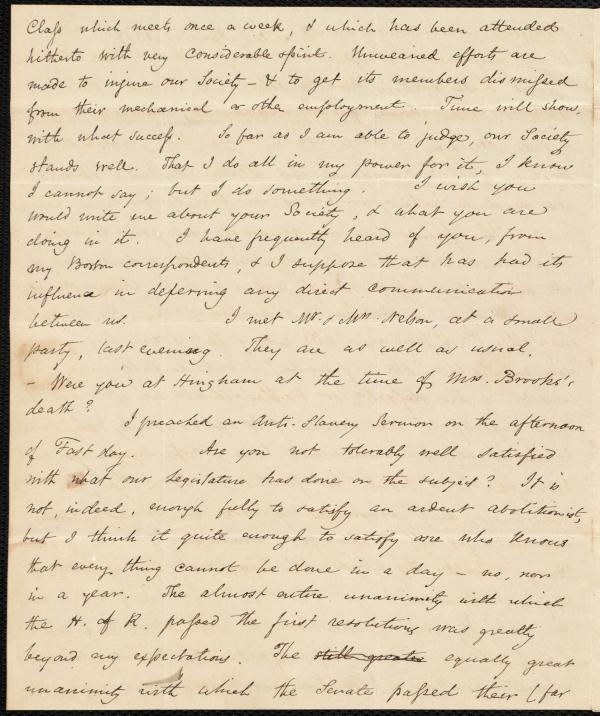 Class which meets once a week, & which has been attended
hitherto with very considerable spirit. Unwearied efforts are
made to injure our Society – & to get its members dismissed
from their mechanical or other employment. Time will show,
with what success. So far as I am able to judge, our Society
stands well. That I do all in my power for it, I know
I cannot say; but I do something. I wish you
would write me about your Society, & what you are
doing in it. I have frequently heard of you, from
my Boston correspondents, & I suppose that has had its
influence in deferring any direct communication
between us. I met Mr. & Mrs. Nelson, at a small
party, last evening. They are as well as usual.
– Were you at Hingham at the time of Mrs. Brooks's
death?
I preached an Anti-Slavery Sermon on the afternoon
of Fast day. Are you not tolerably well satisfied
with what our Legislature has done on the subject? It is
not, indeed, enough fully to satisfy an ardent abolitionist,
but I think it quite enough to satisfy one who knows
that every thing cannot be done in a day – no, nor
in a year. The almost entire unanimity with which
the H. of R. passed the first resolutions was greatly
beyond my expectations. The still greater equally great
unanimity with which the Senate passed their (far